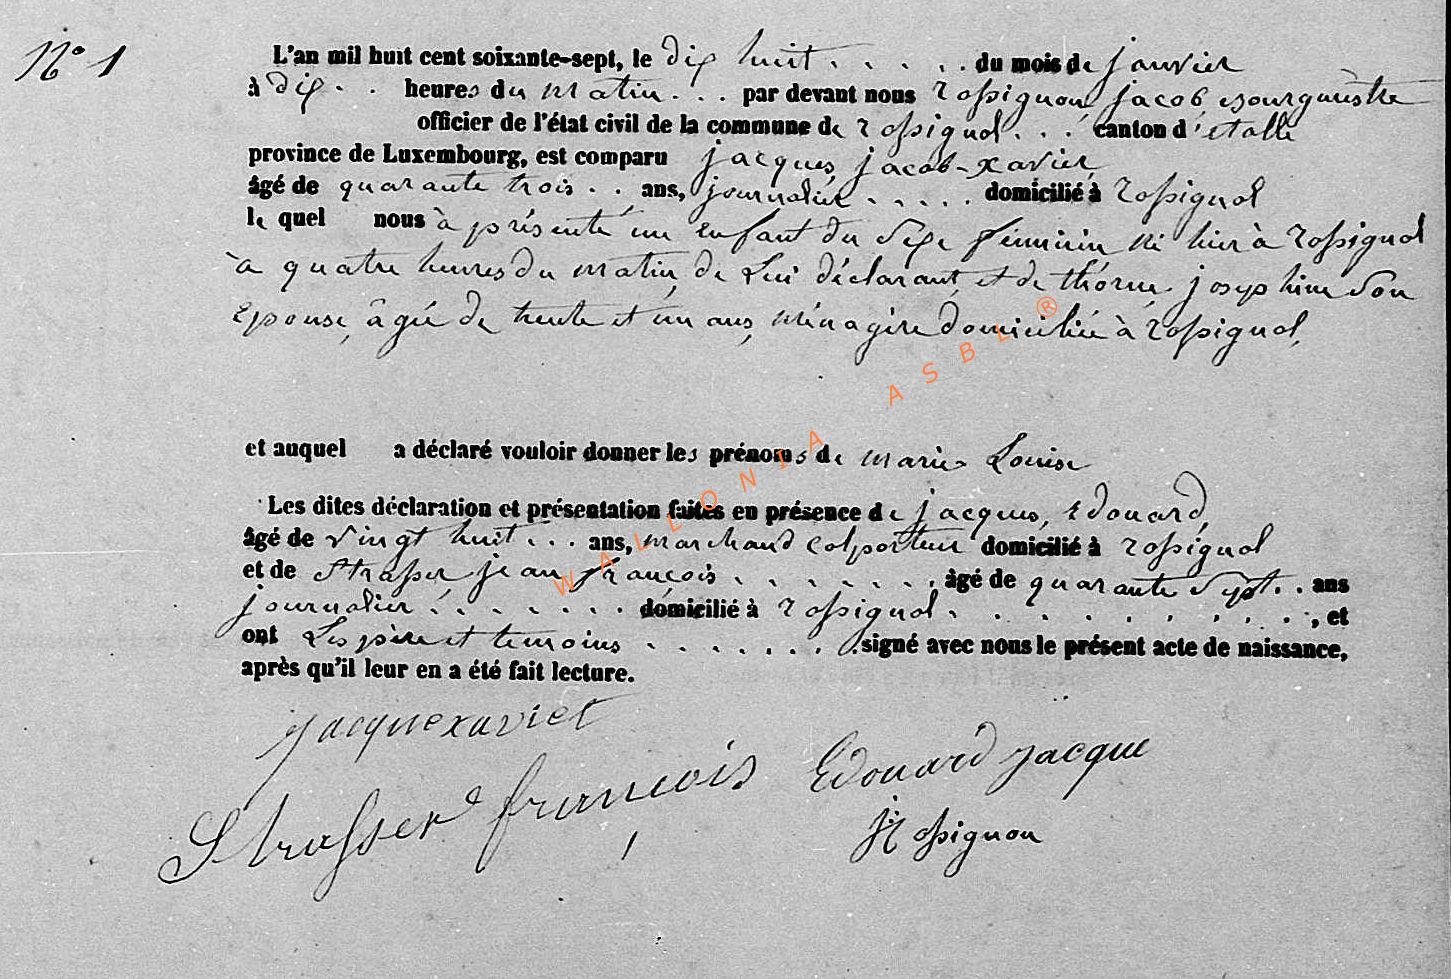 N° 1
L'an mil huit cent soixante-sept, le dix huit . . . . . du mois de janvier
à dix . . heures du matin . . . par devant nous Rossignon jacob Bourgmestre
officier de l'état civil de la commune de Rossignol . . . canton d'etalle
province de Luxembourg, est comparu jacques, jacob-xavier,
âgé de quarante trois . . ans, journalier . . . . . domicilié à Rossignol
le quel nous à présenté un enfant du sexe féminin né hier à Rossignol
à quatre heures du matin, de Lui déclarant, et de thérm josephine son
Epouse, âgée de trente et un ans, ménagère domiciliée à Rossignol,
et auquel a déclaré vouloir donner les prénoms de marie Louise
Les dites déclaration et présentation faites en présence de jacques, Edouard,
âgé de vingt huit . . . ans, marchand colporteur domicilié à Rossignol
et de Strasser jean françois . . . . . . . âgé de quarante sept . . ans
journalier . . . . . . . domicilié à Rossignol . . . . . . . . . , et
ont Les père et temoins . . . . . . . signé avec nous le présent acte de naissance,
après qu'il leur en a été fait lecture.
jacquexavier
Strasser françois Edouard jacque
JRossignon
WALLONIA ASBL ®